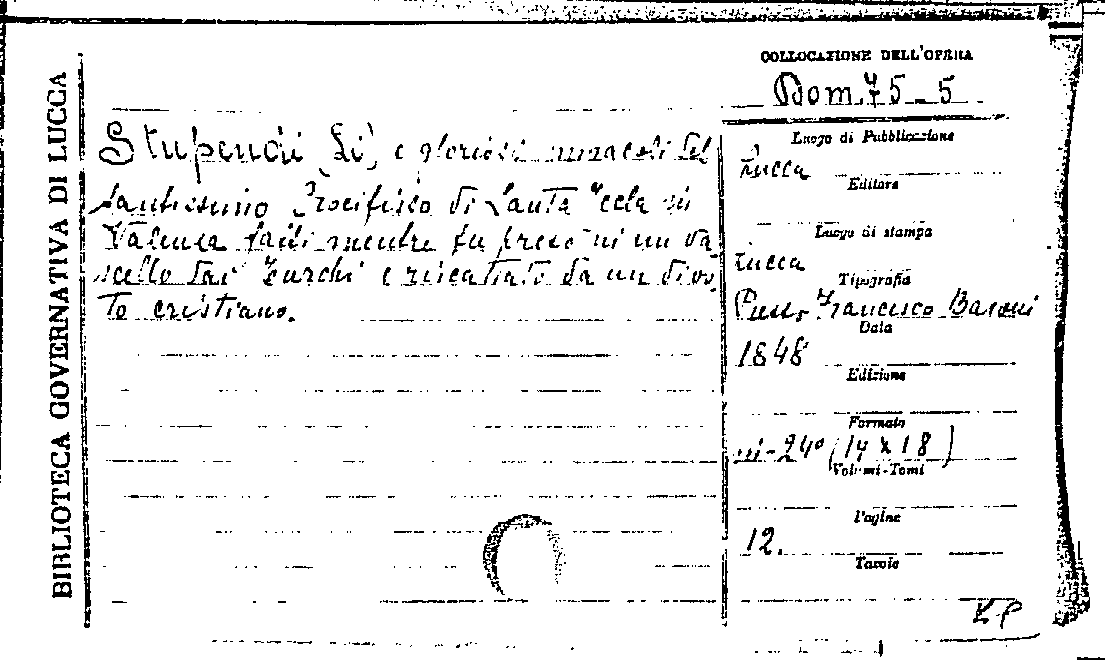 BIBLIOTECA GOVERNATIVA DI LUCCA
COLLOCAZIONE DELL'OPERA
Dom. 75 - 5
Stupendi (Li) e gloriosi miracoli del
santissimo Crocifisso di Santa Tecla in
Valenza fatti mentre fu preso in un va
scello dai Turchi e riscattato da un divo
to cristiano.
Luogo di Pubblicazione
Lucca
Editore
Luogo di stampa
Lucca
Tipografia
Press. Francesco Baroni
Data
1848
Edizione
Formato
in-24° (14 x 18)
Volumi-Tomi
Pagine
12.
Tavole